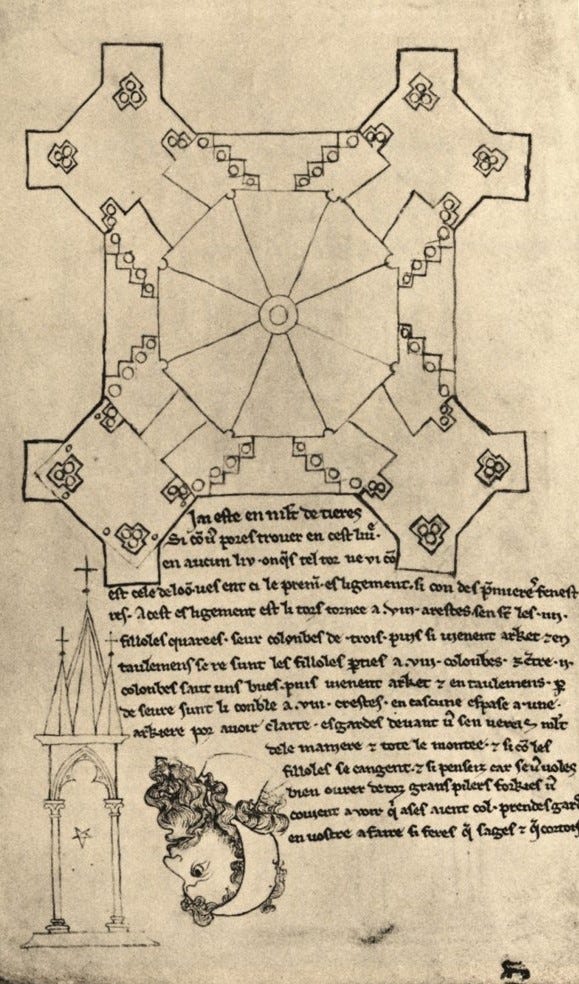 Jai este en mlt' de tieres
Si cō v̄ porés trover en cest liv̄.
en aucun liv · onq̄s tel tor ne vi cō
est cele de loō · ves ent ci le prem̄ · esligement · si con des p̄miere' fenest
res. A cest esligement est li tors tornee a · viii · arestes · sen s't les · iiii ·
filloles quarees · seur colonbes de · trois · puis si vienent arket ⁊ en
taulemens se re sunt les filloles p̄ties a · viii · colonbes · ⁊ c̄tre · ii ·
colonbes saut uns bues · puis vienent arket ⁊ entaulemens · p̄
de seure sunt li conble a · viii · crestes · en cascune espase a · une ·
arkiere por avoir clarte · esgardes devant v̄ sen veres mlt'
de le maniere ⁊ tote le montee · ⁊ si cō les
filloles se cangent · ⁊ si penseiz car se v̄ voles
bien ovrer de toz grans pilers forkies v̄
covient avoir q̄ ases aient col · prendes gard
en vostre afaire si feres q̄ sages ⁊ q̄ cortois